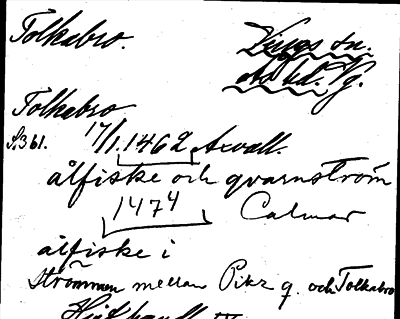 Tolkabro.
Vings sn.
Ås hd. Vg.
Tolkabro
17/1 1462 Axvall.
S. 361.
ålfiske och qvarnström
1474 Calmar
ålfiske i
strömmen mellan Pikz q. och Tolkabro